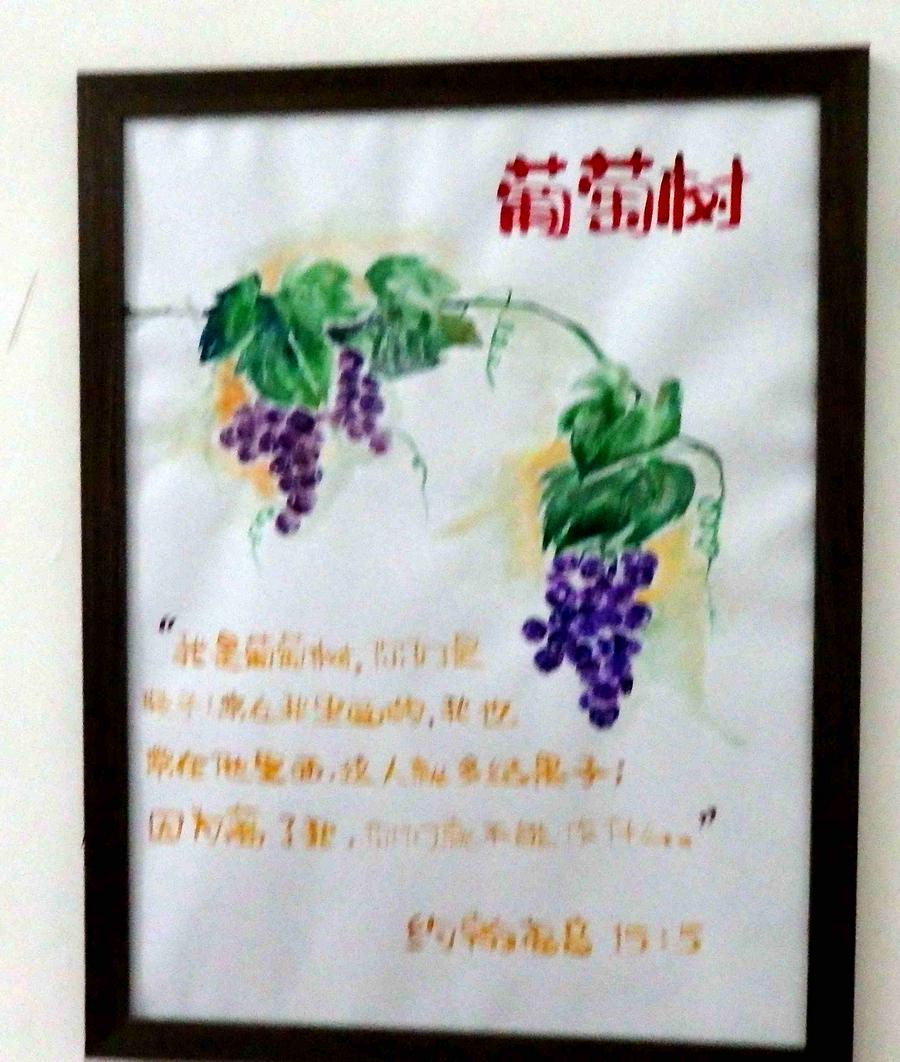 葡萄树
“我是葡萄树,你们是
枝子!常在我里面的,我也
常在他里面,这人就多结果子;
因为离了我,你们就不能作什么。”
约翰福音 15:5